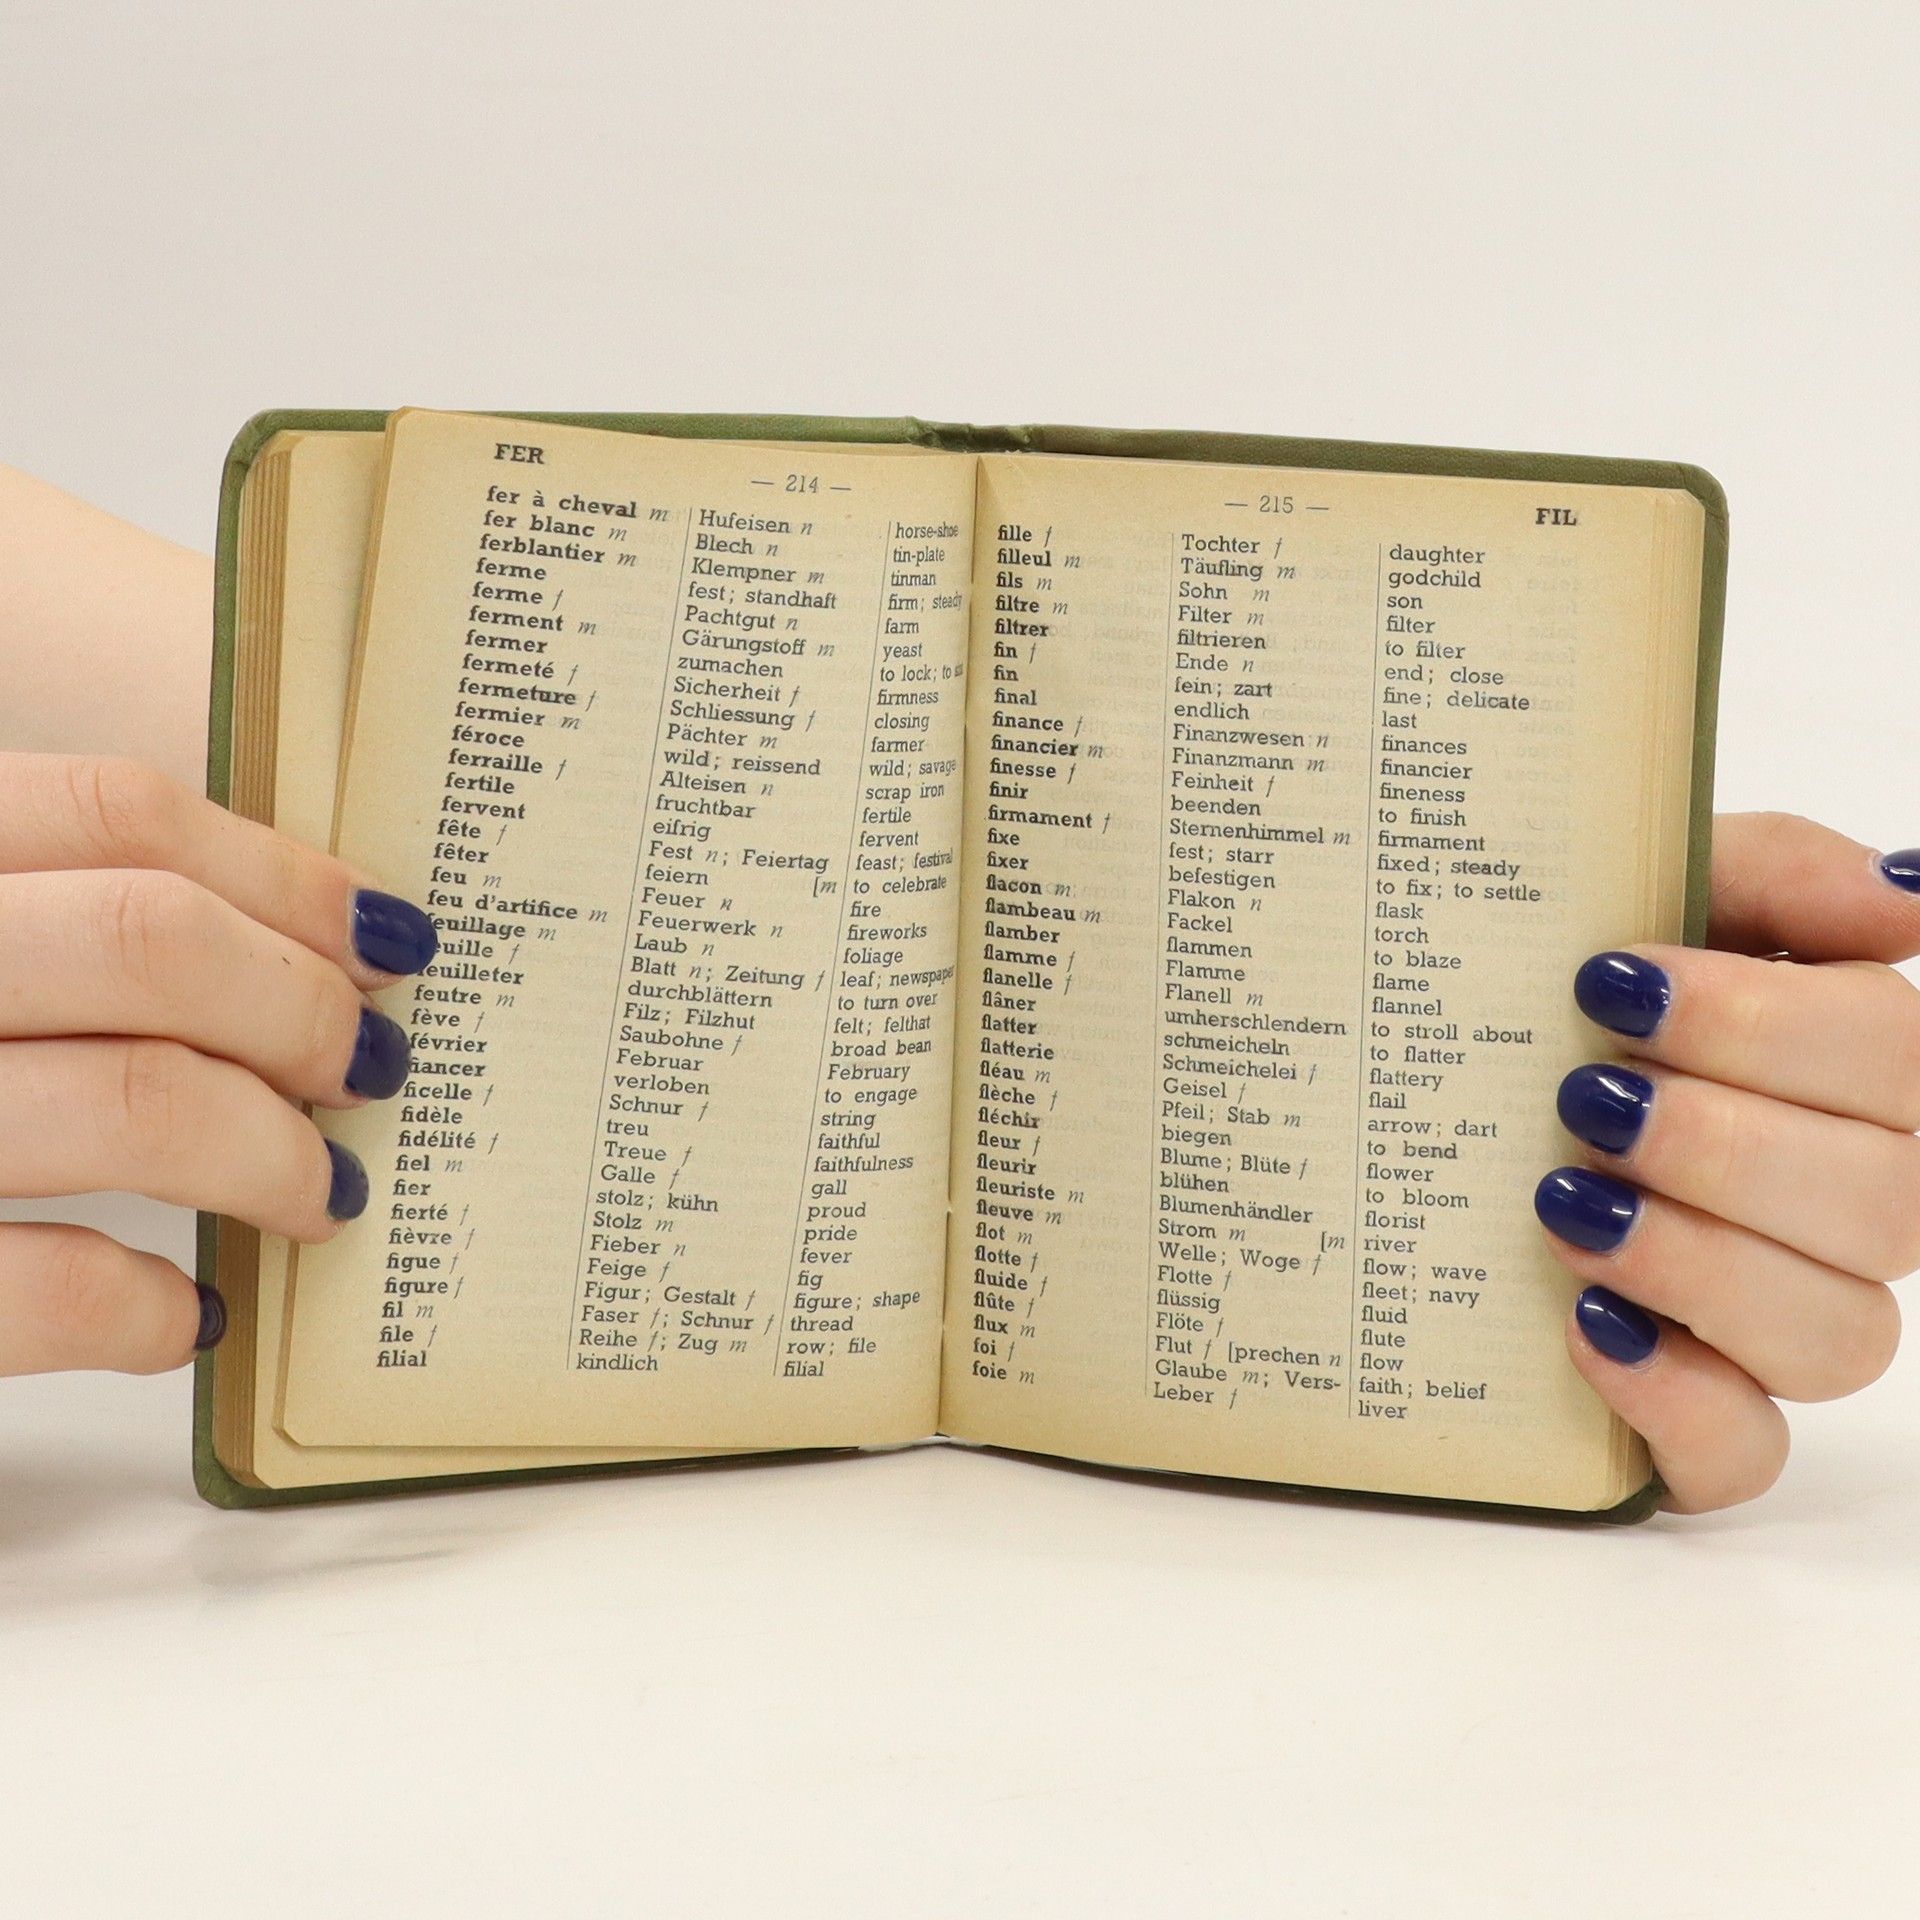 FER
— 214 —
fer à cheval m Hufeisen n horse-shoe
fer blanc m Blech n tin-plate
ferblantier m Klempner m tinman
ferme fest; standhaft firm; steady
ferme f Pachtgut n farm
ferment m Gärungstoff m yeast
fermer zumachen to lock; to
fermeté f Sicherheit f firmness
fermeture f Schliessung f closing
fermier m Pächter m farmer
féroce wild; reissend wild; savage
ferraille f Alteisen n scrap iron
fertile fruchtbar fertile
fervent eifrig fervent
fête f Fest n; Feiertag feast; festival
fêter feiern [m to celebrate
feu m Feuer n fire
feu d'artifice m Feuerwerk n fireworks
feuillage m Laub n foliage
feuille f Blatt n; Zeitung f leaf; newspaper
feuilleter durchblättern to turn over
feutre m Filz; Filzhut felt; felthat
fève f Saubohne f broad bean
février Februar February
fiancer verloben to engage
ficelle f Schnur f string
fidèle treu faithful
fidélité f Treue f faithfulness
fiel m Galle f gall
fier stolz; kühn proud
fierté f Stolz m pride
fièvre f Fieber n fever
figue f Feige f fig
figure f Figur; Gestalt f figure; shape
fil m Faser f; Schnur f thread
file f Reihe f; Zug m row; file
filial kindlich filial
— 215 — FIL
fille f Tochter f daughter
filleul m Täufling m godchild
fils m Sohn m son
filtre m Filter m filter
filtrer filtrieren to filter
fin f Ende n end; close
fin fein; zart fine; delicate
final endlich last
finance f Finanzwesen n finances
financier m Finanzmann m financier
finesse f Feinheit f fineness
finir beenden to finish
firmament f Sternenhimmel m firmament
fixe fest; starr fixed; steady
fixer befestigen to fix; to settle
flacon m Flakon n flask
flambeau m Fackel torch
flamber flammen to blaze
flamme f Flamme flame
flanelle f Flanell m flannel
flâner umherschlendern to stroll about
flatter schmeicheln to flatter
flatterie Schmeichelei f flattery
fléau m Geisel f flail
flèche f Pfeil; Stab m arrow; dart
fléchir biegen to bend
fleur f Blume; Blüte f flower
fleurir blühen to bloom
fleuriste m Blumenhändler florist
fleuve m Strom m [m river
flot m Welle; Woge f flow; wave
flotte f Flotte f fleet; navy
fluide f flüssig fluid
flûte f Flöte f flute
flux m Flut f [prechen n flow
foi f Glaube m; Vers- faith; belief
foie m Leber f liver